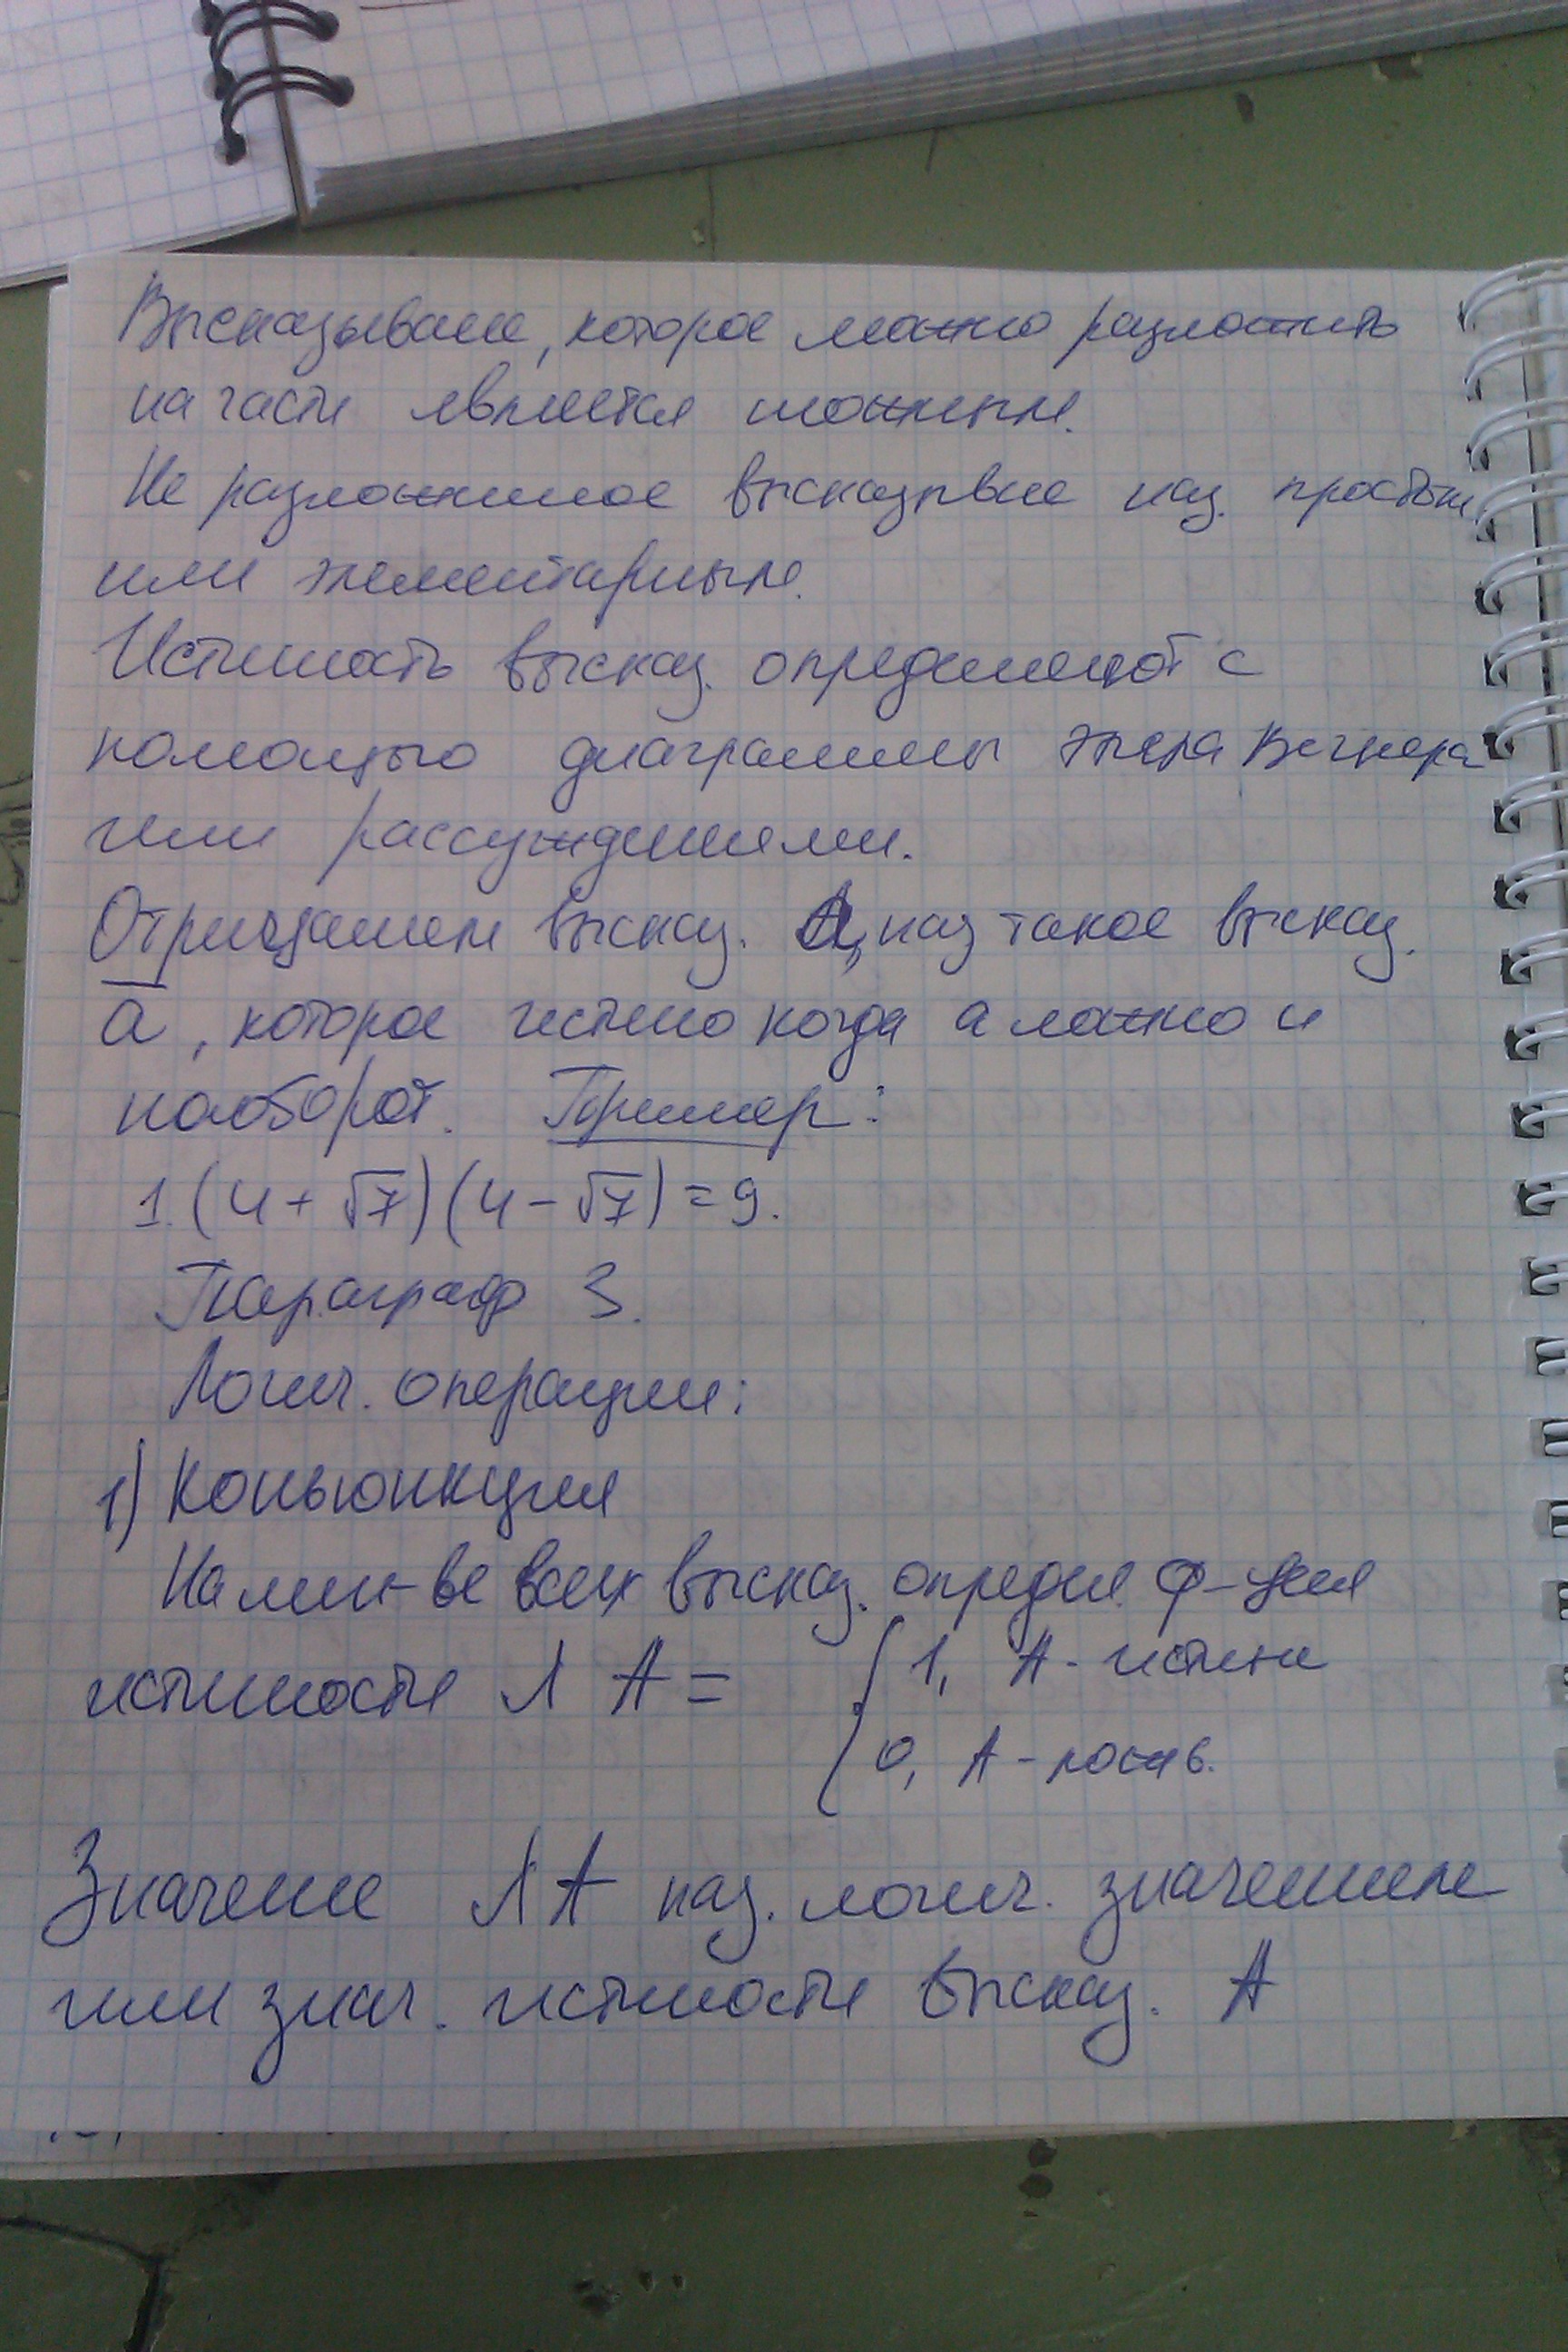 Высказывание, которое можно разложить
на части является сложным.
Не разложимое высказывние наз. простым
или элементарным.
Истиность выск​аз. определяют с
помощью диаграммы эйлера Вегнера
или рассуждениями.
Отрицанием высказ. а, наз такое высказ.
a̅, которое истино когда а ложно и
наоборот. Пример:
1. (4+√7)(4-√7)=9.
Параграф 3.
Логич. операции:
1) Коньюнкция
На мн-ве всех высказ. опредил. ф-ция
истиности Л А = { 1, А - истина
0, А - ложь.
Значение ЛА наз. логич. значением
или знач. истиности высказ. А